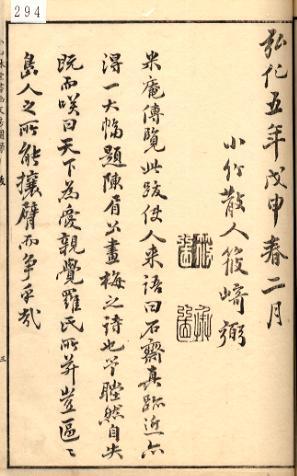 294
弘化五年戊申春二月
小竹散人筱崎弼
米庵傳覽此跋使人来語曰石齋真跡近亦
得一大幅題陳眉公畫梅之詩也予瞠然自失
既而咲曰天下為廣親覺羅氏所并豈區〻
島人之所能攘臂而争乎哉